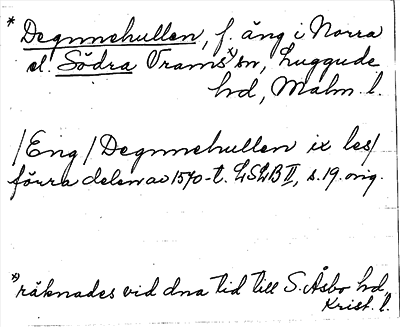 * Degnnehullen, f. äng i Norra
el. Södra Vrams* sn, Luggude
hd, Malm. l.
/Eng/ Degnnehullen ix les/
förra delen av 1570-t. LSLB II, s. 19. orig.
* räknades vid dna tid till S. Åsbo hd
Krist. l.